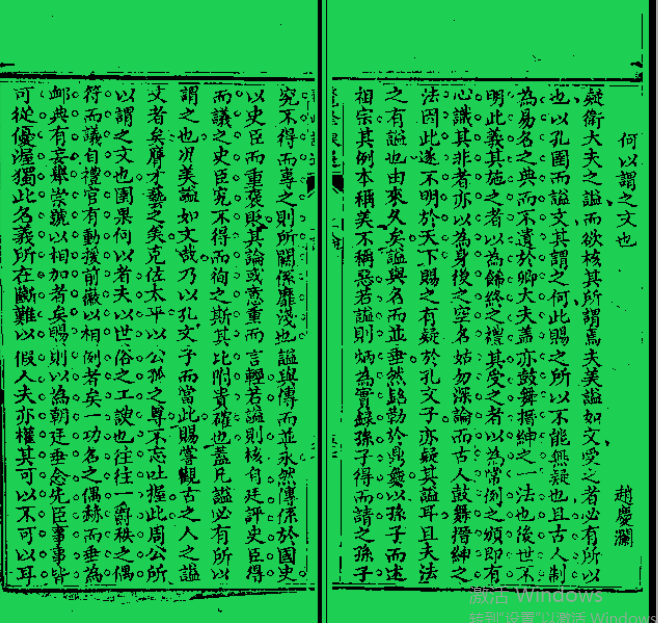 何以謂之文也
趙慶瀾
疑衛大夫之謚而欲核其所謂焉夫美謚如文受之者必有所以
也以孔圉而謚文其謂之何此賜之所以不能無疑也且古人制
為易名之典而不遺於卿大夫蓋亦鼓舞搢紳之一法也後世不
明此義其施之者以為飾終之禮其受之者以為常例之頒即有
心識其非者亦以為身後之空名姑勿深論而古人鼓舞搢紳之
法因此遂不明於天下賜之有疑於孔文子亦疑其謚耳且夫法
之有謚也由來久矣謚與名而並垂然銘勒於鼎彝以孫子而述
相宗其例本稱美不稱惡若謚則炳為實錄孫子得而請之孫子
究不得而專之則所關係靡淺也謚與傳而並永然傳係於國史
以史臣而重褒貶其論或意重而言輕若謚則核自廷評史臣得
而議之史臣究不得而徇之斯其比附貴確也蓋凡謚必有所以
謂之也況美謚如文哉乃以孔文子而當此賜嘗觀古之人之謚
文者矣齊才藝之美克佐太平以公孤之尊不忘吐握此周公所
以謂之文也圉果何以者夫以世俗之工諛也往往一爵秩之偶
符而議自禮官有動援前徽以相例者矣一功名之偶赫而垂為
卹典有妄舉崇號以相加者矣賜則以為朝廷垂念先臣事事皆
可從優渥獨此名義所在斷難以假人夫亦權其可以不可以耳
激活 Windows
转到"设置"以激活 Windows